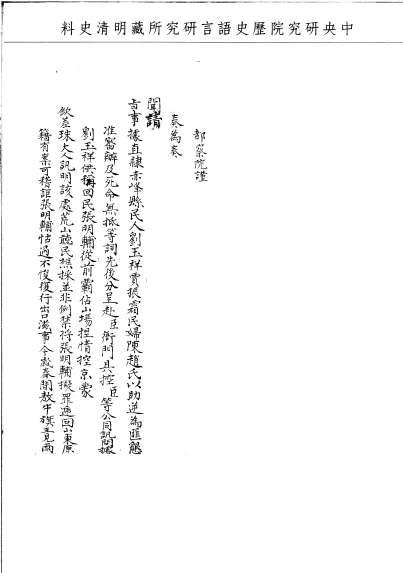 中央研究院歷史語言研究所藏明清史料
都察院謹
奏為奏
聞請
旨事據直隸赤峰縣民人劉玉祥賈振霜民婦陳趙氏以助逆為匪懇
准審辦及死命無抵等詞先後分呈赴臣衙門具控臣等公同訊問據
劉玉祥供稱回民張明輔從前霸佔山場捏情控京蒙
欽差珠大人訊明該處荒山聽民樵採並非例禁將張明輔擬罪遞回山東原
籍有案可稽詎張明輔怙過不悛復行出口滋事令敖秦開敖中旗主見兩